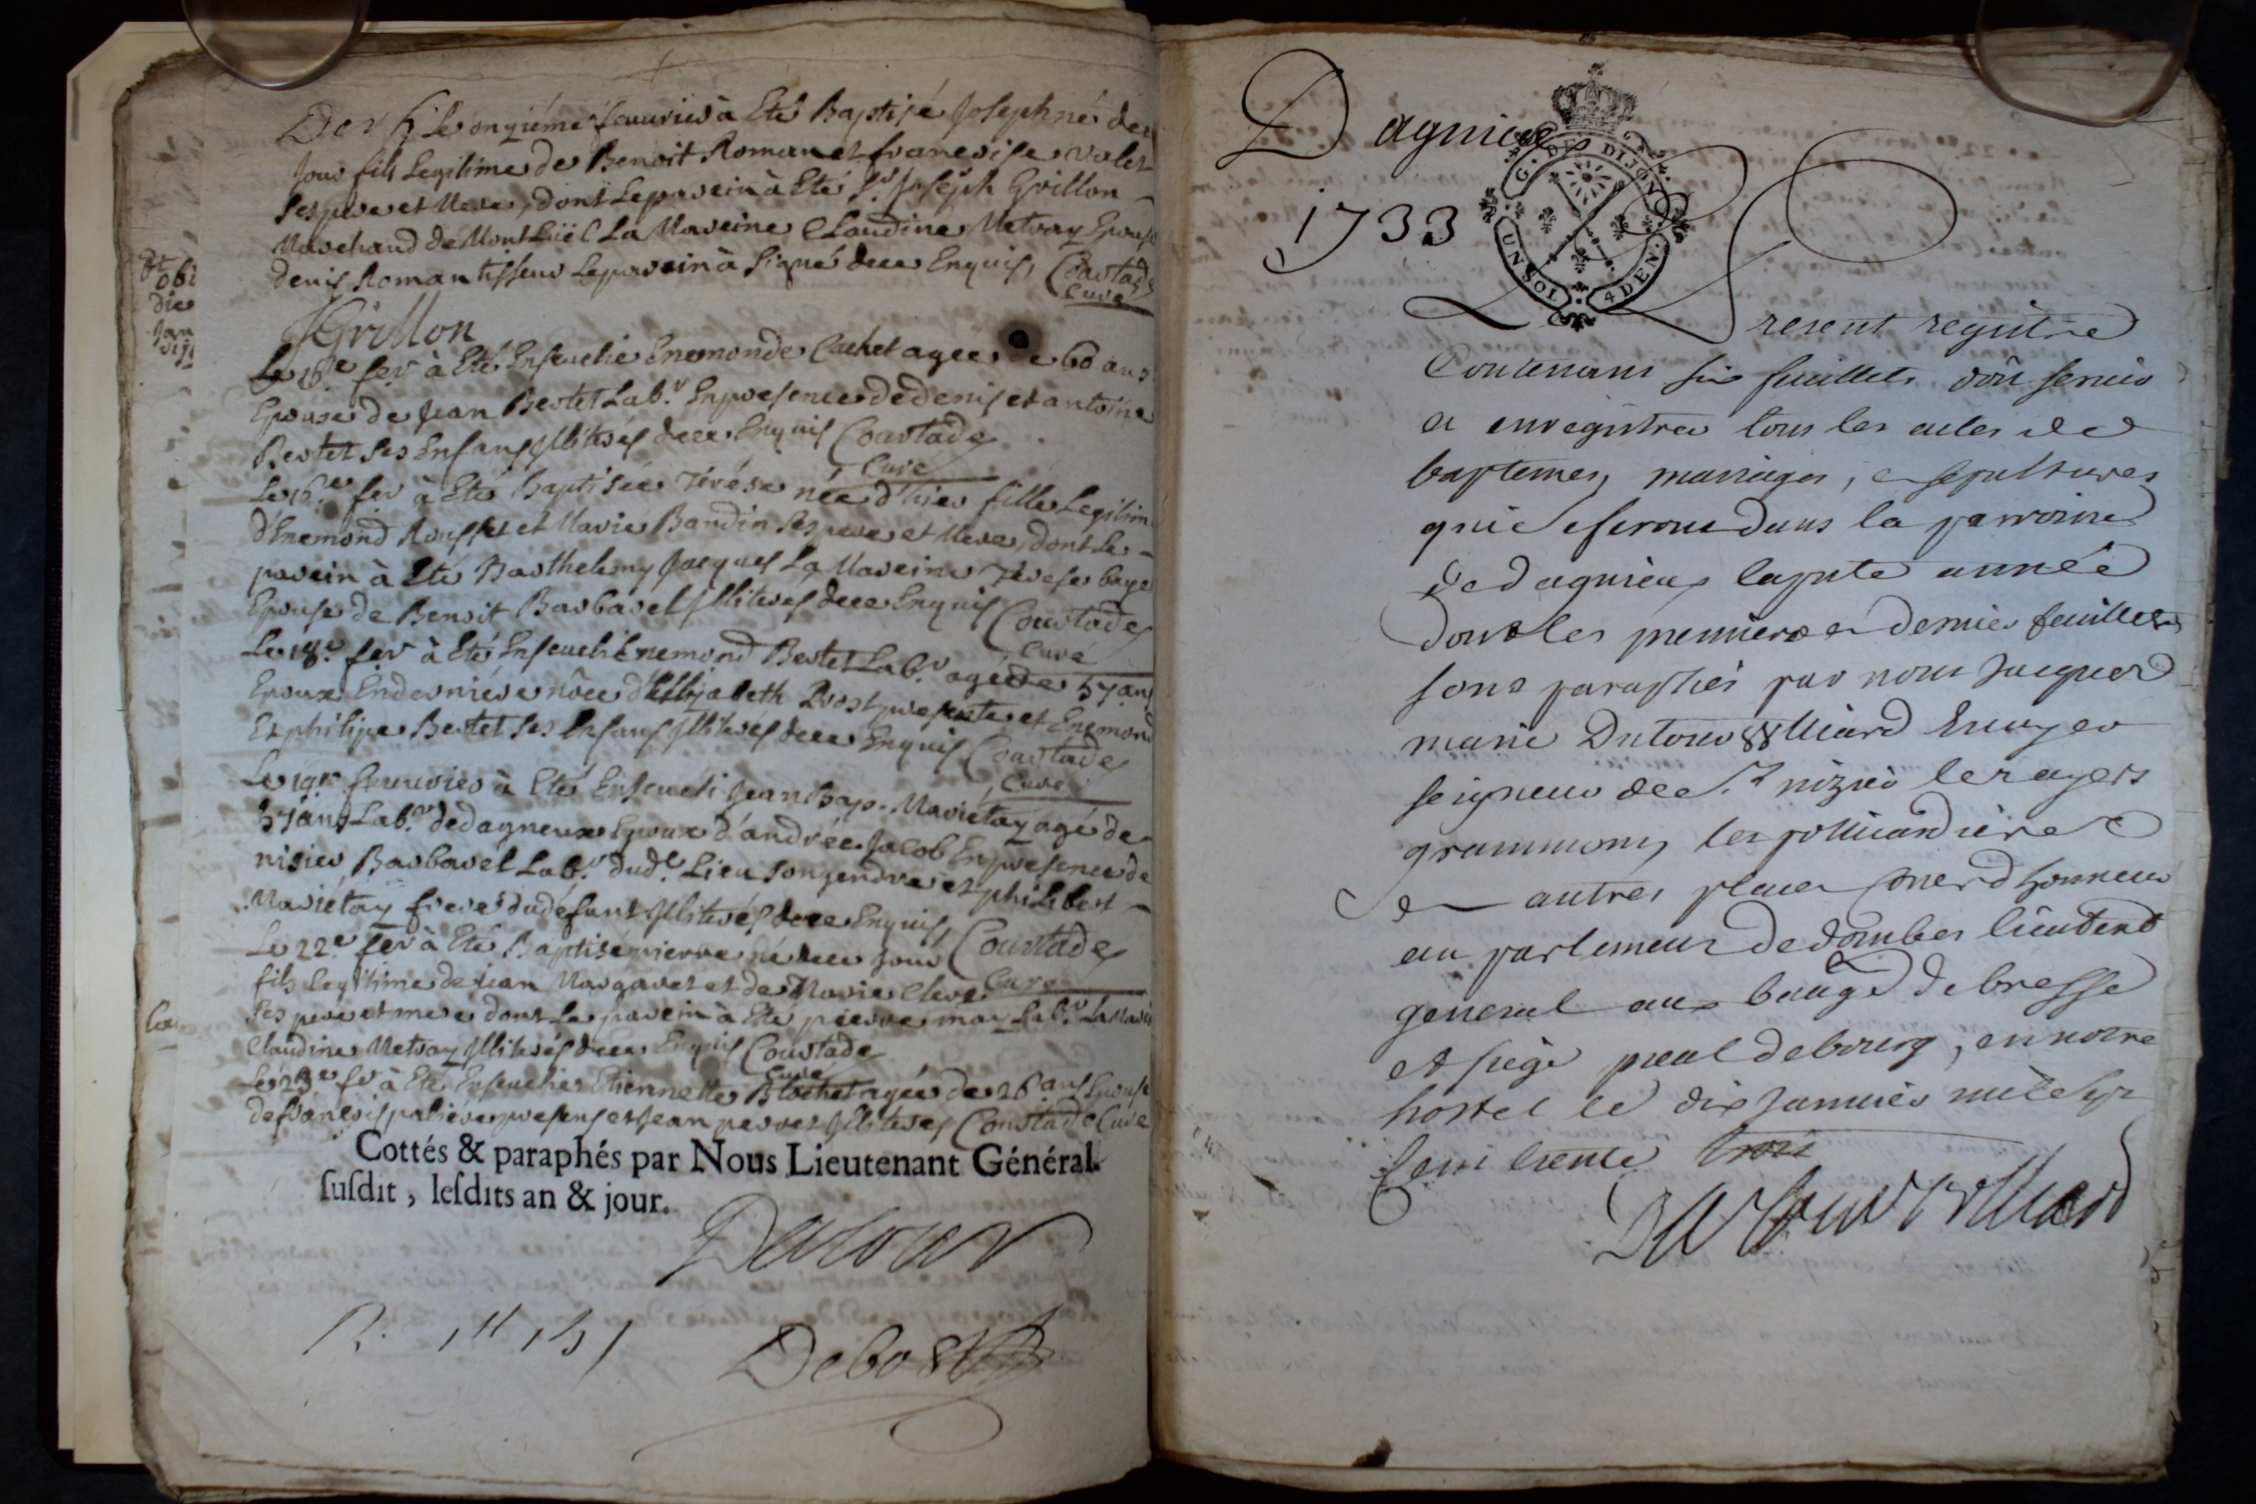 Le onziéme feuurier à Eté Baptisé Joseph né de
jour fils Legitime de Benoit Roman et francoise valet
ses pere et Mere, dont Le parein à Eté Sr Joseph Grillon
Marchand de Montluël La Mareine Claudine Metray Epouse
denis Roman tisseur Le parein à signé de ce Enquis, Coustade
Curé
JGrillon
Le 16e fer à Eté Enseuelie Enemonde Cachet agée de 60 ans
Epouse de Jean Bertet Labr En presence de denis et antoine
Bertet ses Enfans Illiterés de ce Enquis Coustade
Curé
Le 16e fer à Eté Baptisée Térése née d'hier fille Legitime
d'Enemond Rousset et Marie Bandin ses pere et Mere, dont Le
parein à Eté Barthelemy Jacques La Mareine Térese
Epouse de Benoit Barbaret Illiterés de ce Enquis Coustade
Curé
Le 18e fer à Eté Enseueli Enemond Bertet Labr agé de 57 ans
Epoux En derniére nôce d'Elizabeth Prost presente et Enemond
Et philipe Bertet ses Enfans Illiterés de ce Enquis Coustade
Curé
Le 19e feuurier à Eté Enseueli Jean Bap. Marietay agé de
57 ans Labr de dagneux Epoux d'andrée Jacob En presence de
nisier Barbaret Labr dudt Lieu son gendre et philibert
Marietay frere du défunt Illiterés de ce Enquis, Coustade
Curé
Le 22e fer à Eté Baptisé pierre né de ce jour
fils Legitime de Jean Margaret et de Marie Clere
ses pere et mere dont Le parein à Eté pierre may Labr La Mareine
Claudine Metray Illiterés de ce Enquis Coustade
Curé
Le 23e fer à Eté Enseuelie Etiennette Blochet agée de 26 ans Epouse
de françois present et Jean perret Illiterés Coustade Curé
Cottés & paraphés par Nous Lieutenant Général
susdit, lesdits an & jour.
Dutour
Debost
Dagnieux
1733
G. DE DIJON
UN SOL 4 DEN.
Le Present registre
Contenans six feuillets doit seruir
a enregistrer tous les actes de
baptemes, mariages, et sepultures
qui se feront dans la parroisse
de dagnieux la pnte année
dont les premier et dernier feuillets
sont paraphés par nous Jacques
marie Dutour Vuilliard Ecuyer
seigneur de St nizier le
grammont, les
et autres places Coner d'honneur
au parlement de dombes lieutent
general au bailliage de bresse
et siege pnal de bourg, en notre
hostel le dix Januier mil sept
cent trente trois
Dutour Vulliard